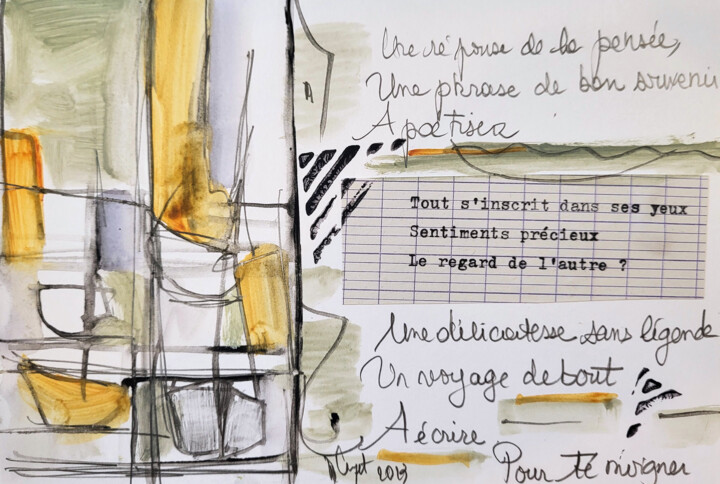 Une réponse de la pensée,
Une phrase de bon souvenir
A poétiser
Tout s'inscrit dans ses yeux
Sentiments précieux
Le regard de l'autre ?
Une délicatesse sans légende
Un voyage debout
A écrire
Pour te